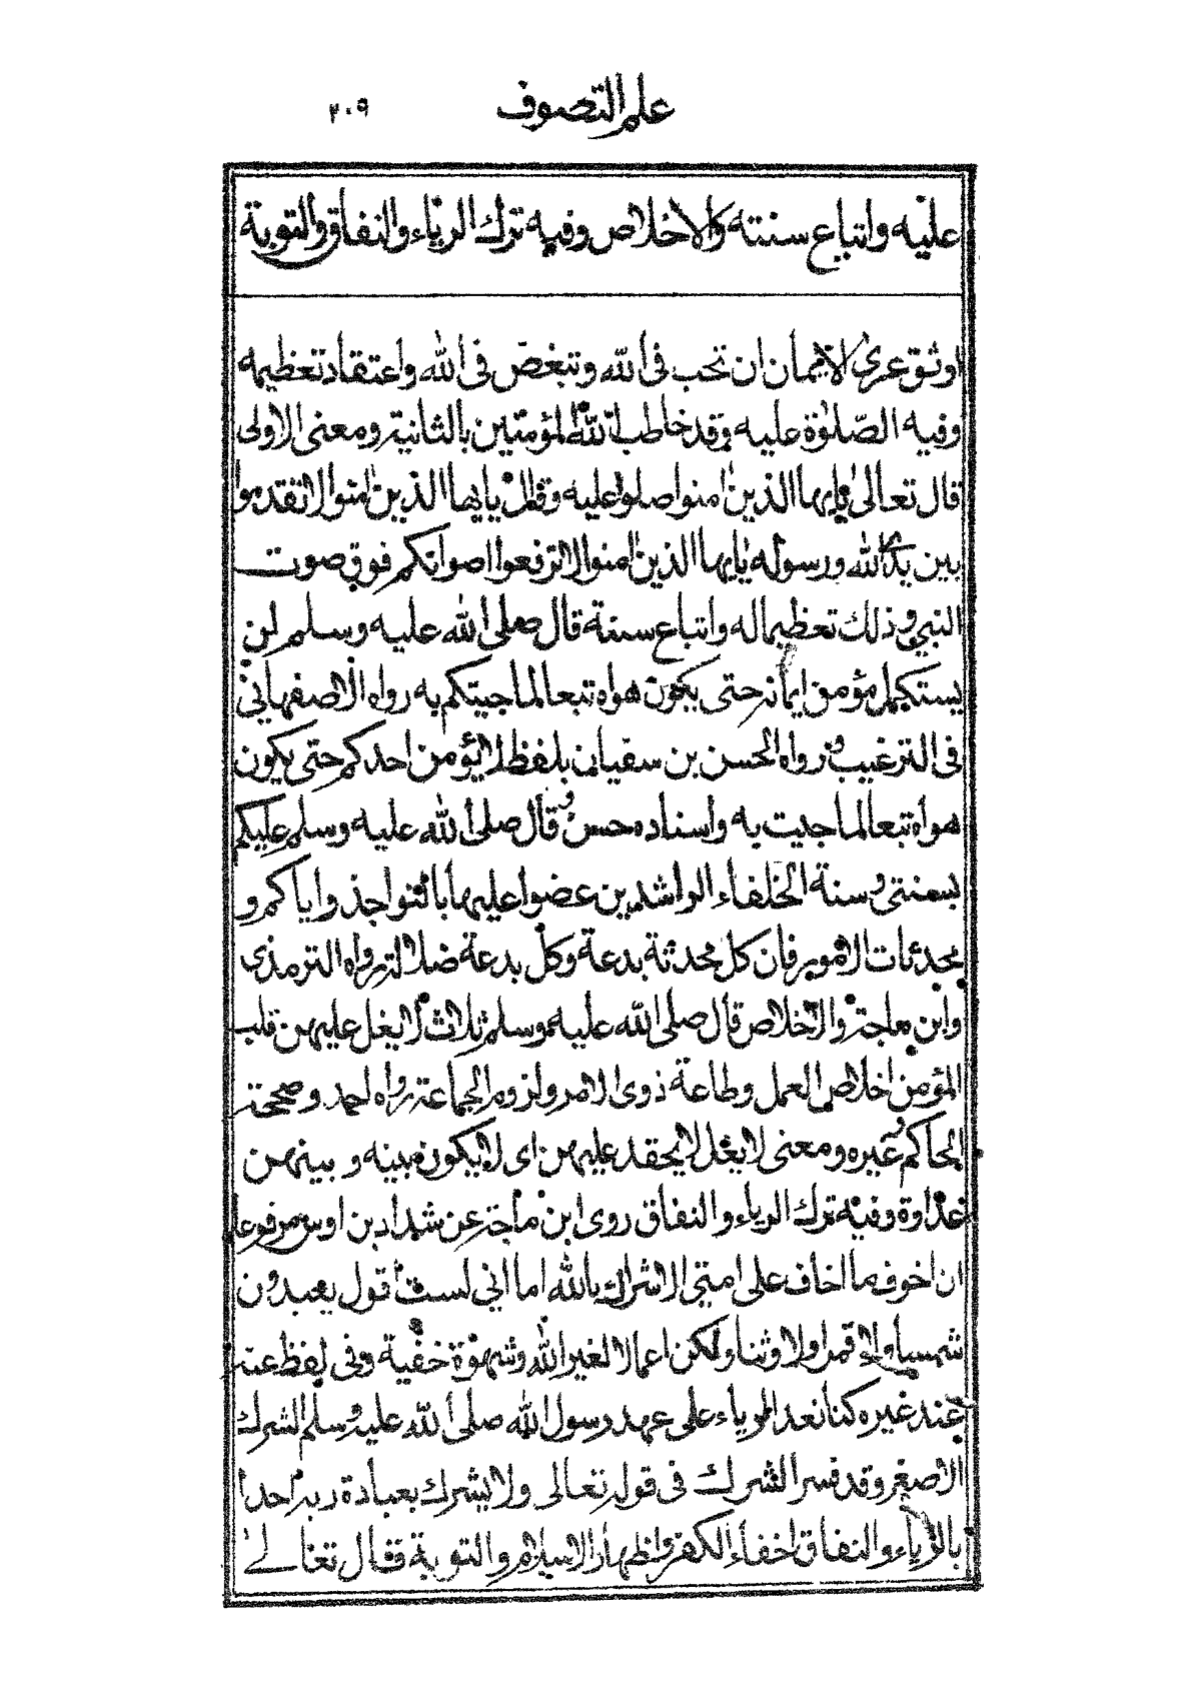 علم التصوف ٢٠٩
عليه واتباع سنته والاخلاص وفيه ترك الرياء والنفاق والتوبة
اوثق عرى الايمان ان تحب فى الله وتبغض فى الله واعتقاد تعظيمه
وفيه الصلوٰة عليه وقد خاطب الله المؤمنين بالثانية ومعنى الاولى
قال تعالى يٰايها الذين اٰمنوا صلوا عليه وقال يايها الذين اٰمنوا لا تقدموا
بين يدى الله ورسوله يٰايها الذين اٰمنوا لا ترفعوا اصواتكم فوق صوت
النبي وذلك تعظيما له واتباع سنة قال صلى الله عليه وسلم لن
يستكمل مؤمن ايمانه حتى يكون هواه تبعا لما جيتكم به رواه الاصفهاني
فى الترغيب ورواه الحسن بن سفيان بلفظ لا يؤمن احدكم حتى يكون
هواه تبعا لما جيت به واسناده حسن وقال صلى الله عليه وسلم عليكم
بسنتى وسنة الخلفاء الراشدين عضوا عليها بالنواجذ واياكم و
محدثات الامور فان كل محدثة بدعة وكل بدعة ضلالة رواه الترمذى
وابن ماجة والاخلاص قال صلى الله عليه وسلم ثلاث لا يغل عليهن قلب
المؤمن اخلاص العمل وطاعة ذوى الامر ولزوم الجماعة رواه احمد وصححه
الحاكم وغيره ومعنى لا يغل لا يحقد عليهن اى لا يكون بينه و بينهن
عداوة وفيه ترك الرياء والنفاق روى ابن ماجة عن شداد بن اوس مرفوعا
ان اخوف ما اخاف على امتي الاشراك بالله اما اني لست اقول يعبدون
شمسا ولا قمرا ولا وثنا ولكن اعمالا لغير الله وشهوة خفية وفى لفظ عنه
عند غيره كنا نعد الرياء على عهد رسول الله صلى الله عليه وسلم الشرك
الاصغر وقد فسر الشرك فى قوله تعالى ولا يشرك بعبادة ربه احدا
بالرياء والنفاق اخفاء الكفر واظهار الاسلام والتوبة قال تعالى